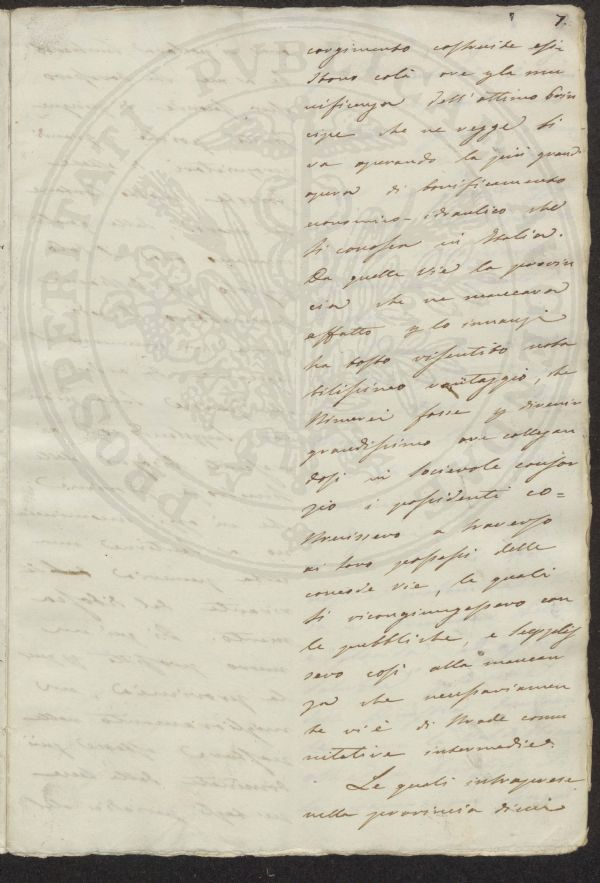 7.
corgimento costruite esi-
stono colà ove p la mu
nificenza dell'ottimo Prin
cipe che ne regge si
va operando la più grand
opera di bonificamento
economico-idraulico che
si conosca in Italia.
Da quelle vie la provin
cia che ne mancava
affatto p lo innanzi
ha tosto risentito nota
bilissimo vantaggio, che
stimerei fosse p divenir
grandissimo ove collegan
dosi in socievole consor
zio i possidenti co=
struissero a traverso
ai loro possessi delle
comode vie, le quali
si ricongiungessero con
le pubbliche, e supplis
sero così alla mancan
za che necessariamen
te vi è di strade comu
nitative intermedie.
Le quali intraprese
nella provincia di cui
PROSPERITATI PUBLICAE AUGENDAE